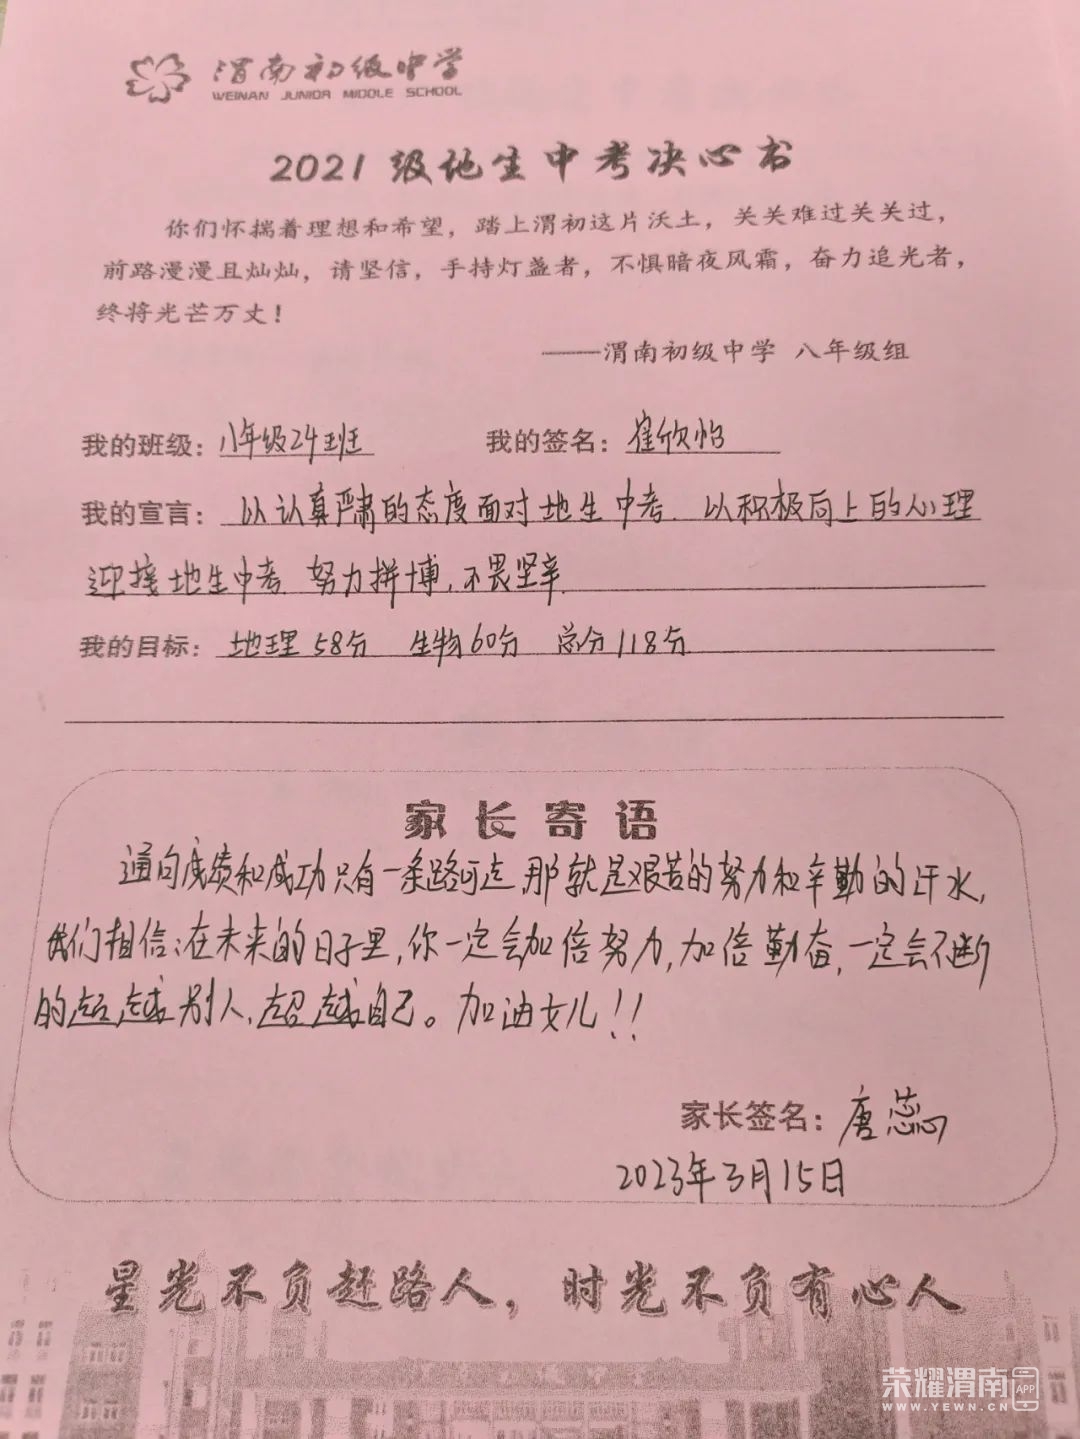 渭南初级中学
WEINAN JUNIOR MIDDLE SCHOOL
2021级地生中考决心书
你们怀揣着理想和希望，踏上渭初这片沃土，关关难过关关过，
前路漫漫且灿灿，请坚信，手持灯盏者，不惧暗夜风霜，奋力追光者，
终将光芒万丈！
——渭南初级中学 八年级组
我的班级：八年级24班 我的签名：崔欣怡
我的宣言：以认真严肃的态度面对地生中考．以积极向上的心理
迎接地生中考．努力拼博，不畏坚辛．
我的目标：地理58分 生物60分 总分118分．
家长寄语
通向成绩和成功只有一条路可走，那就是艰苦的努力和辛勤的汗水，
我们相信：在未来的日子里，你一定会加倍努力，加倍勤奋，一定会不断
的超越别人，超越自己。加油女儿！！
家长签名：唐蕊
2023年3月15日
星光不负赶路人，时光不负有心人
荣耀渭南APP
WWW.YEWN.CN